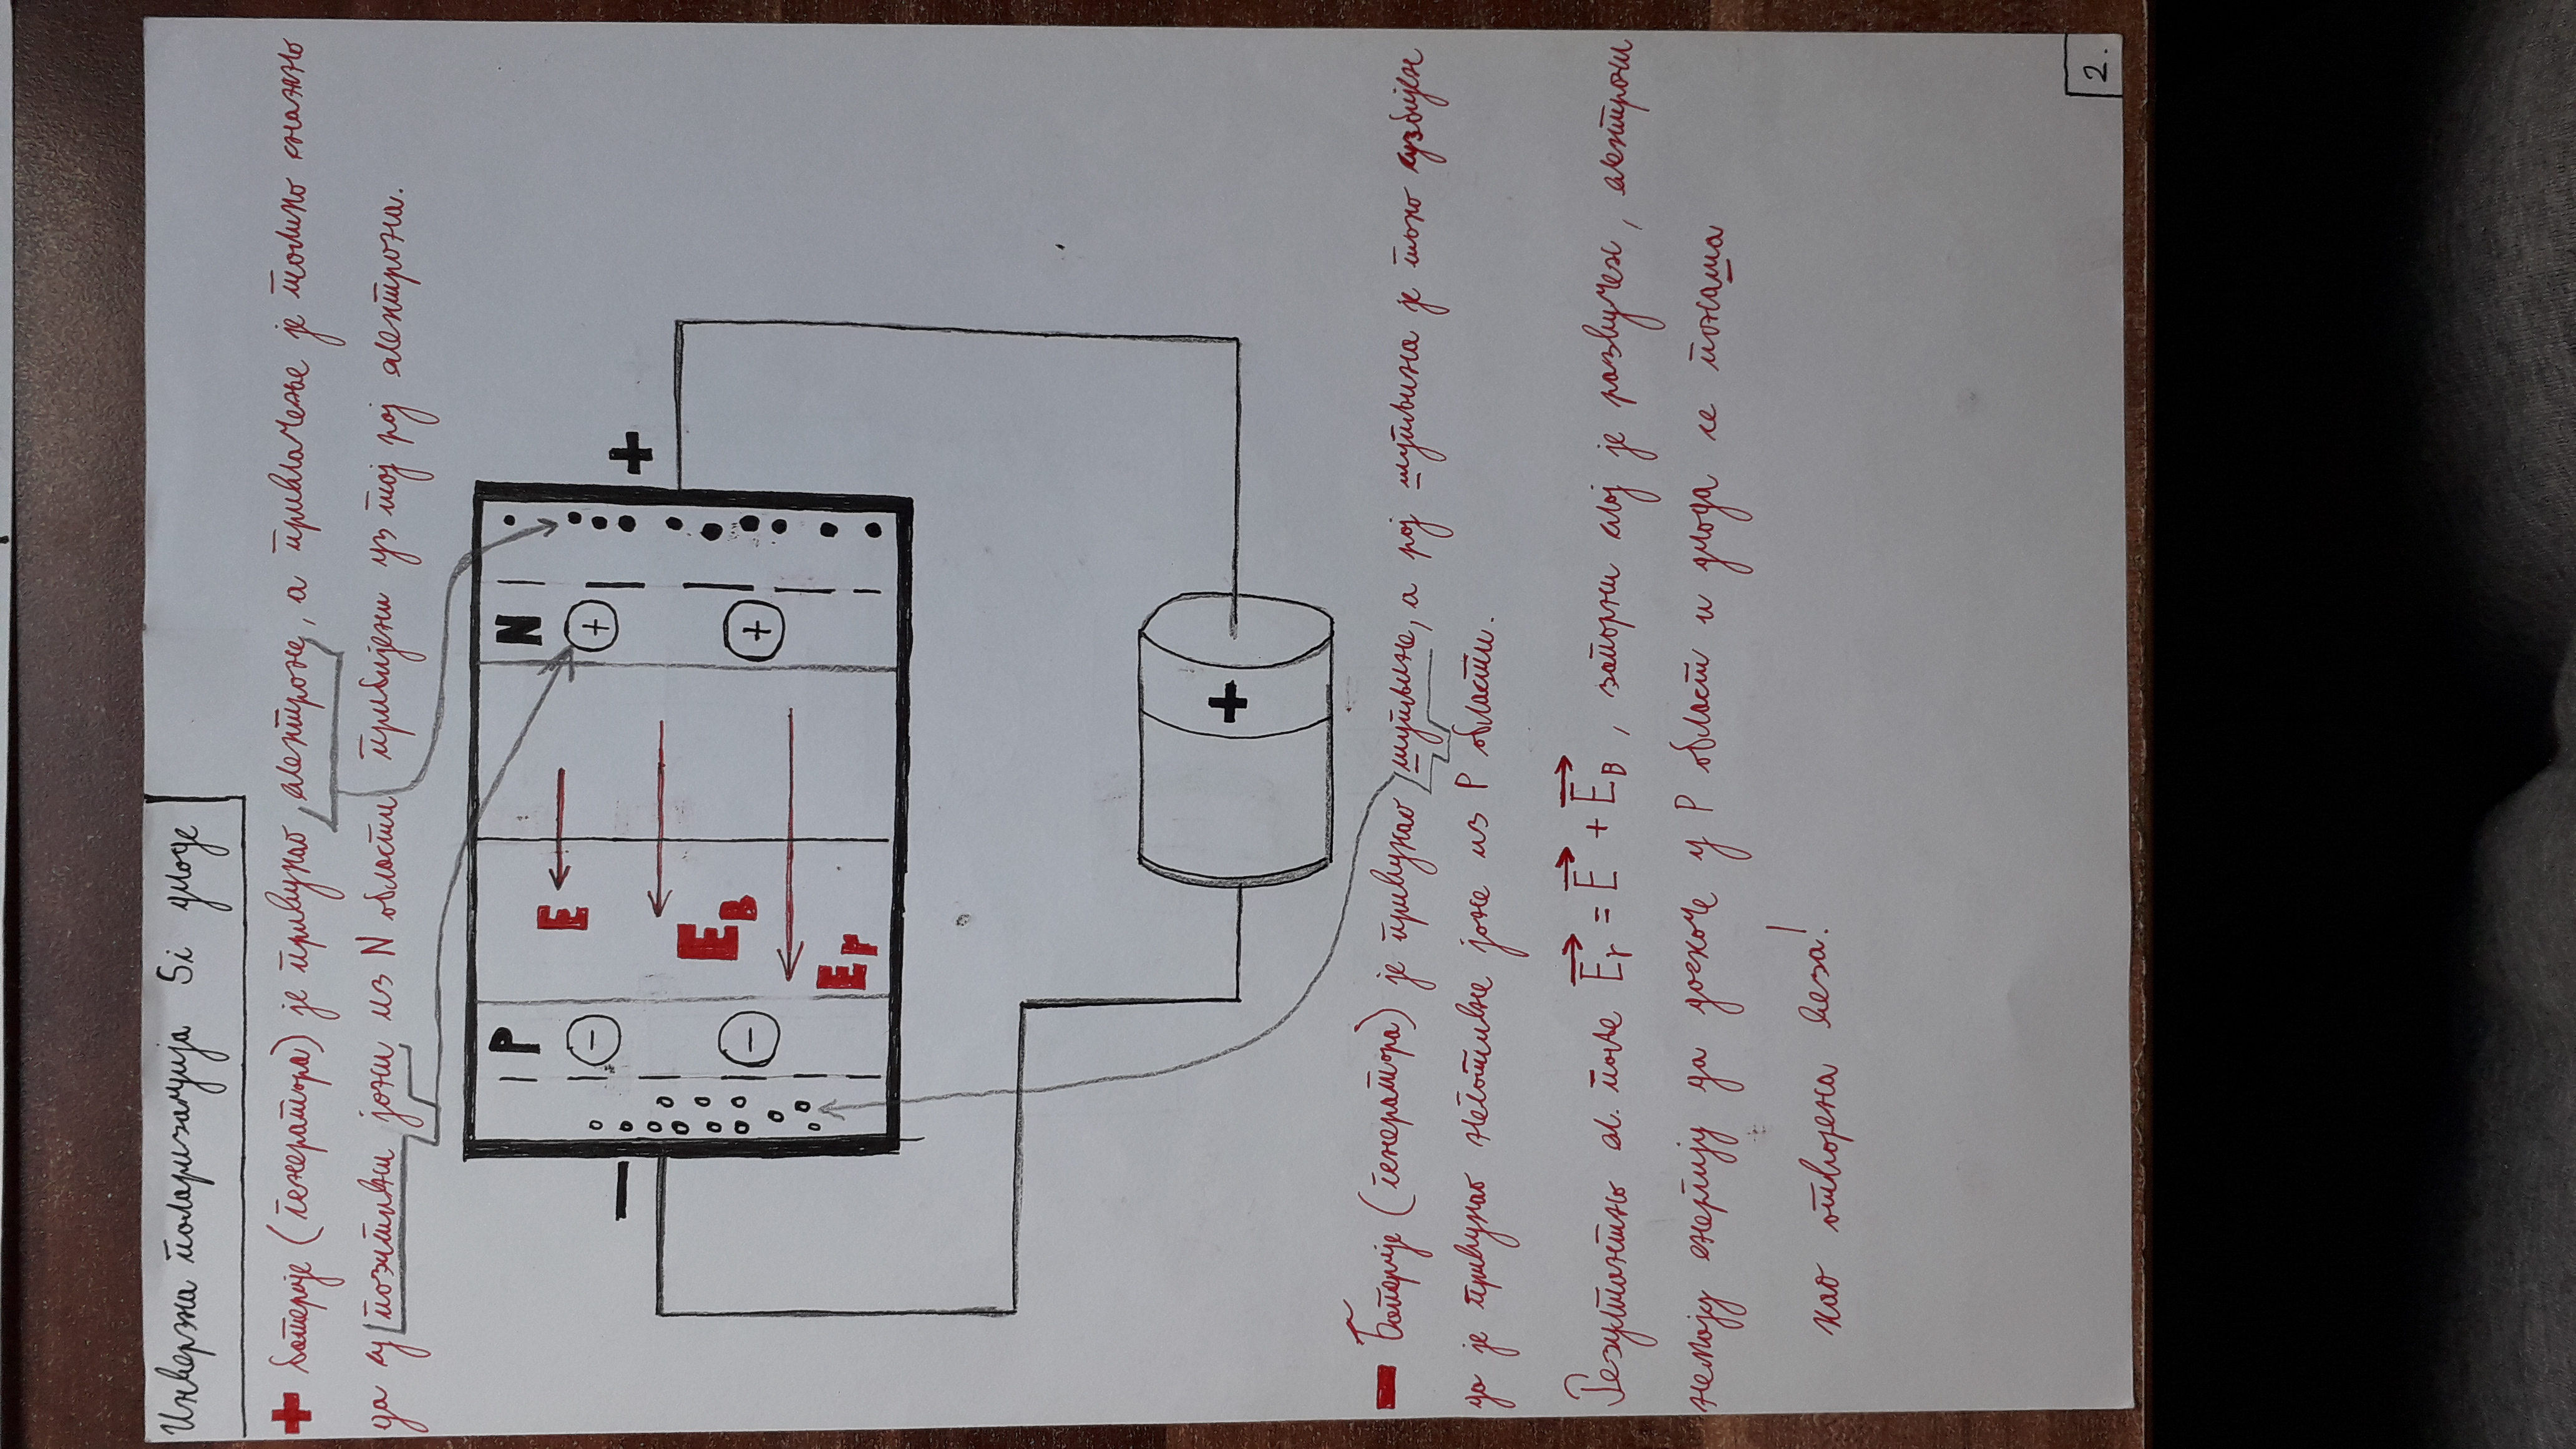 Инверзна поларизација Si диоде
+ батерије (генератора) је привукао електроне, а привлачење је толико снажно
да су позитивни јони из N области прибијени уз тај рој електрона.
P N
E
- +
EB
Er
+
- Батерије (генератора) је привукао шупљине, а рој шупљина је толко сузбијен
да је привукао неготивне јоне из P области.
Резултантно ел. поље Er = E + EB, запорни слој је развучен, електрони
немају енергију да доскоче у P област и диода се понаша
као отворена веза!
2.